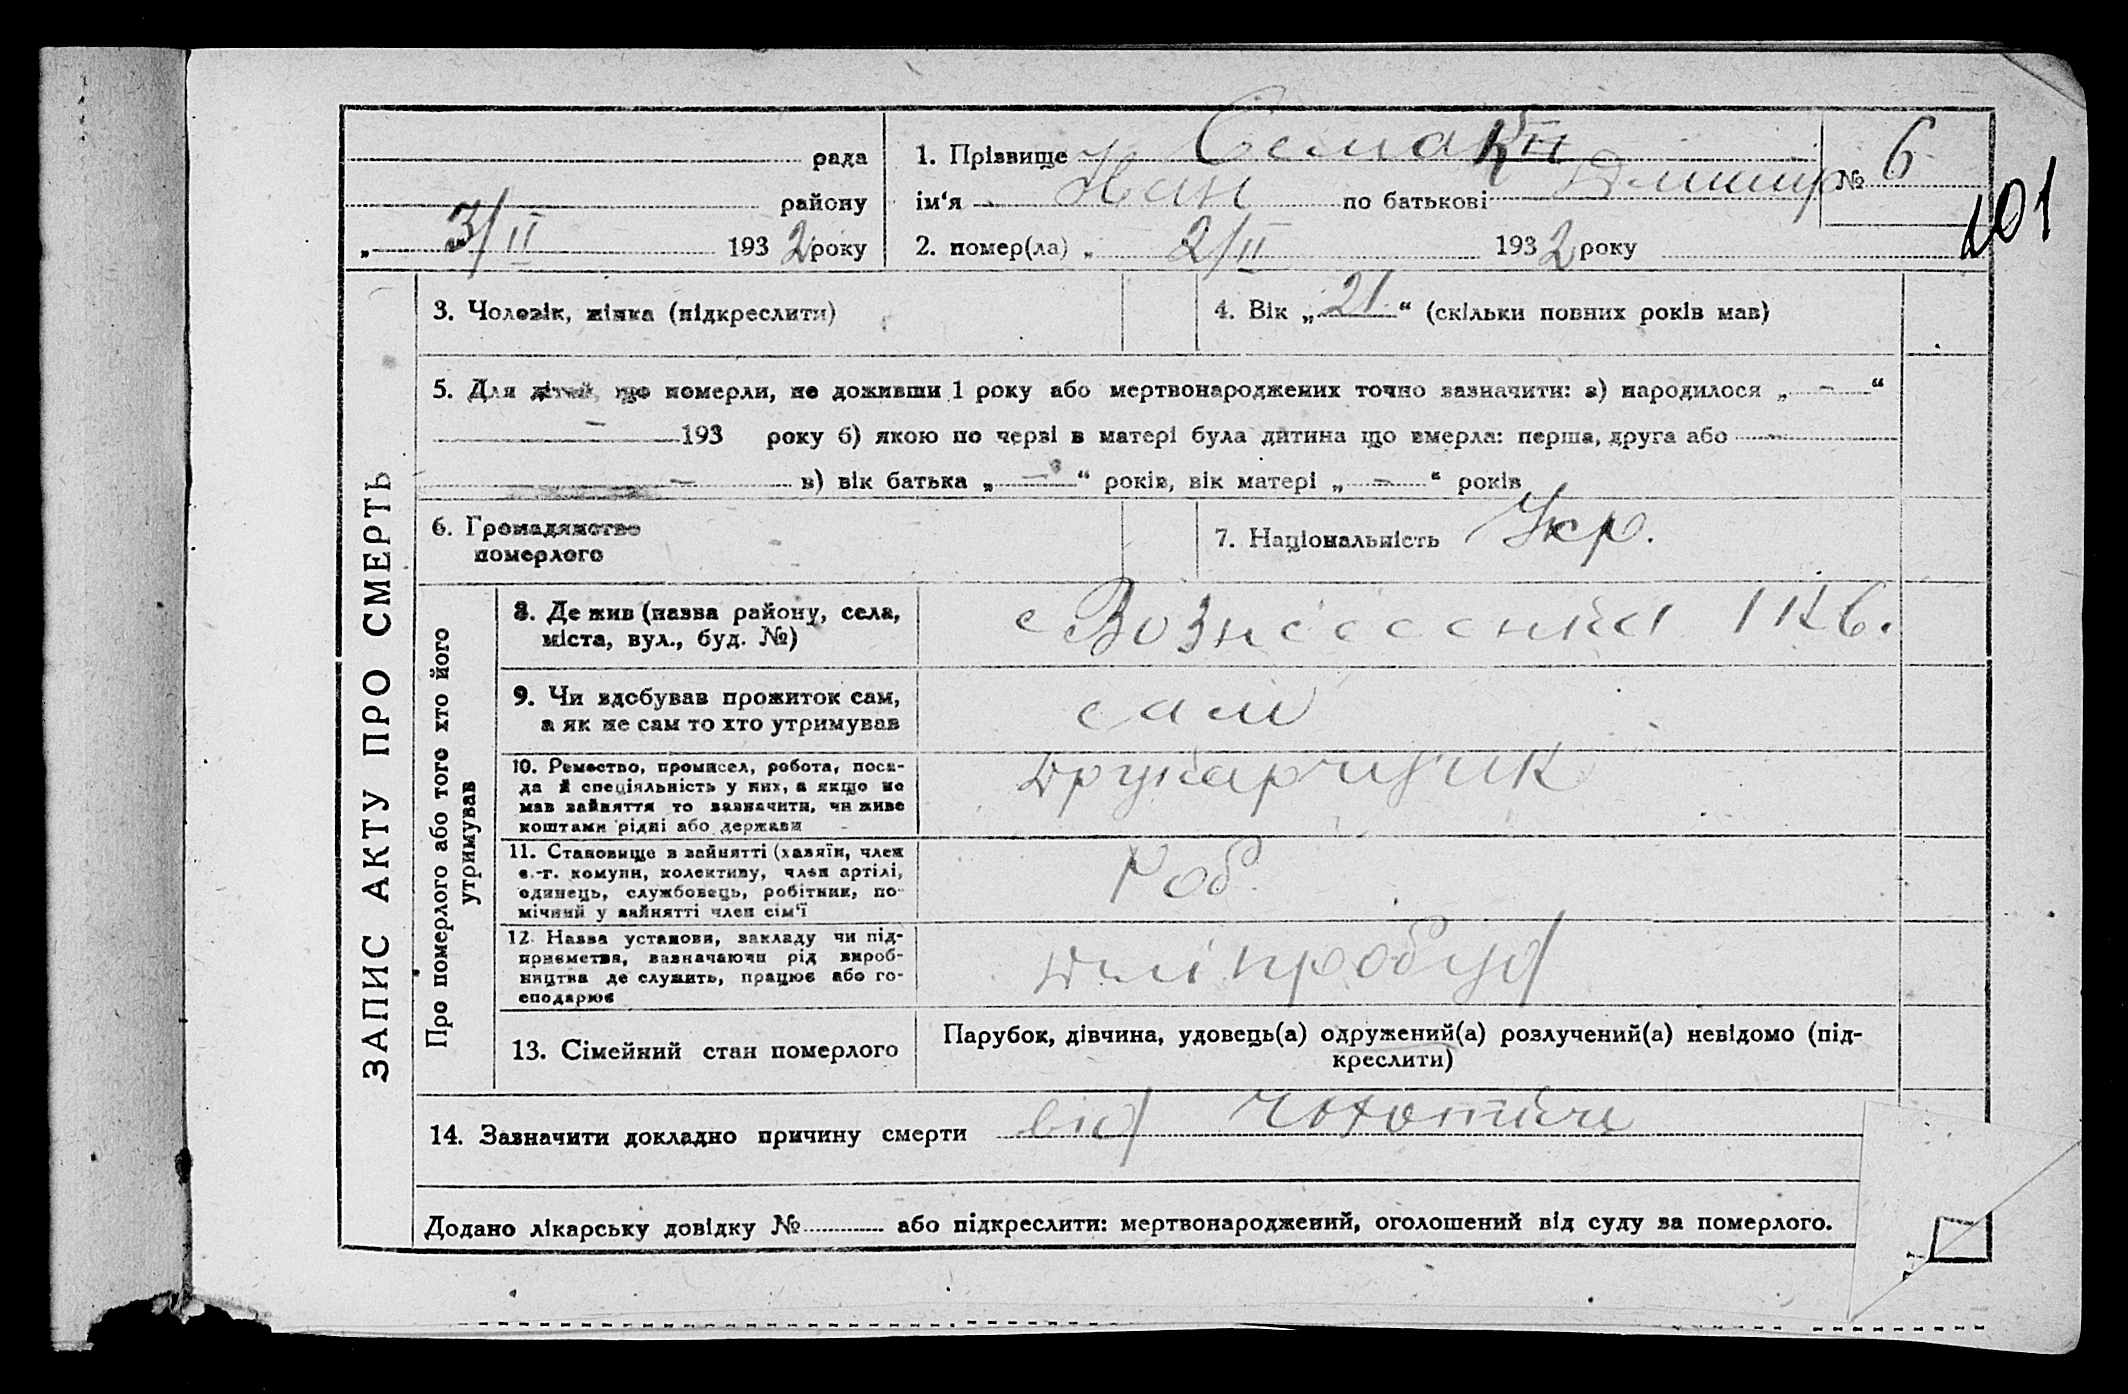 рада
району
„ 3/II 1932 року
1. Прізвище
ім'я Иван по батькові Дмитр
2. помер(ла) „ 2/II 1932 року
№ 6
101
ЗАПИС АКТУ ПРО СМЕРТЬ
3. Чоловік, жінка (підкреслити)
4. Вік „21“ (скільки повних років мав)
5. Для дітей, що померли, не доживши 1 року або мертвонароджених точно зазначити: а) народилося „ – “
– 193 року б) якою по черзі в матері була дитина що вмерла: перша, друга або –
– в) вік батька „ – “ років, вік матері „ – “ років
6. Громадянство
померлого
7. Національність Укр.
Про померлого або того хто його
утримував
8. Де жив (назва району, села,
міста, вул., буд. №)
с Вознесенка
9. Чи здобував прожиток сам,
а як не сам то хто утримував
сам
10. Ремество, промисел, робота, поса-
да й спеціяльність у них, а якщо не
мав зайняття то зазначити, чи живе
коштами рідні або держави
11. Становище в зайнятті (хазяїн, член
с.-г. комуни, колективу, член артілі,
одинець, службовець, робітник, по-
мічний у зайнятті член сім'ї
Роб
12. Назва установи, закладу чи під-
приємства, зазначаючи рід вироб-
ництва де служить, працює або го-
сподарює
Дніпробуд
13. Сімейний стан померлого
Парубок, дівчина, удовець(а) одружений(а) розлучений(а) невідомо (під-
креслити)
14. Зазначити докладно причину смерти від
Додано лікарську довідку № або підкреслити: мертвонароджений, оголошений від суду за померлого.